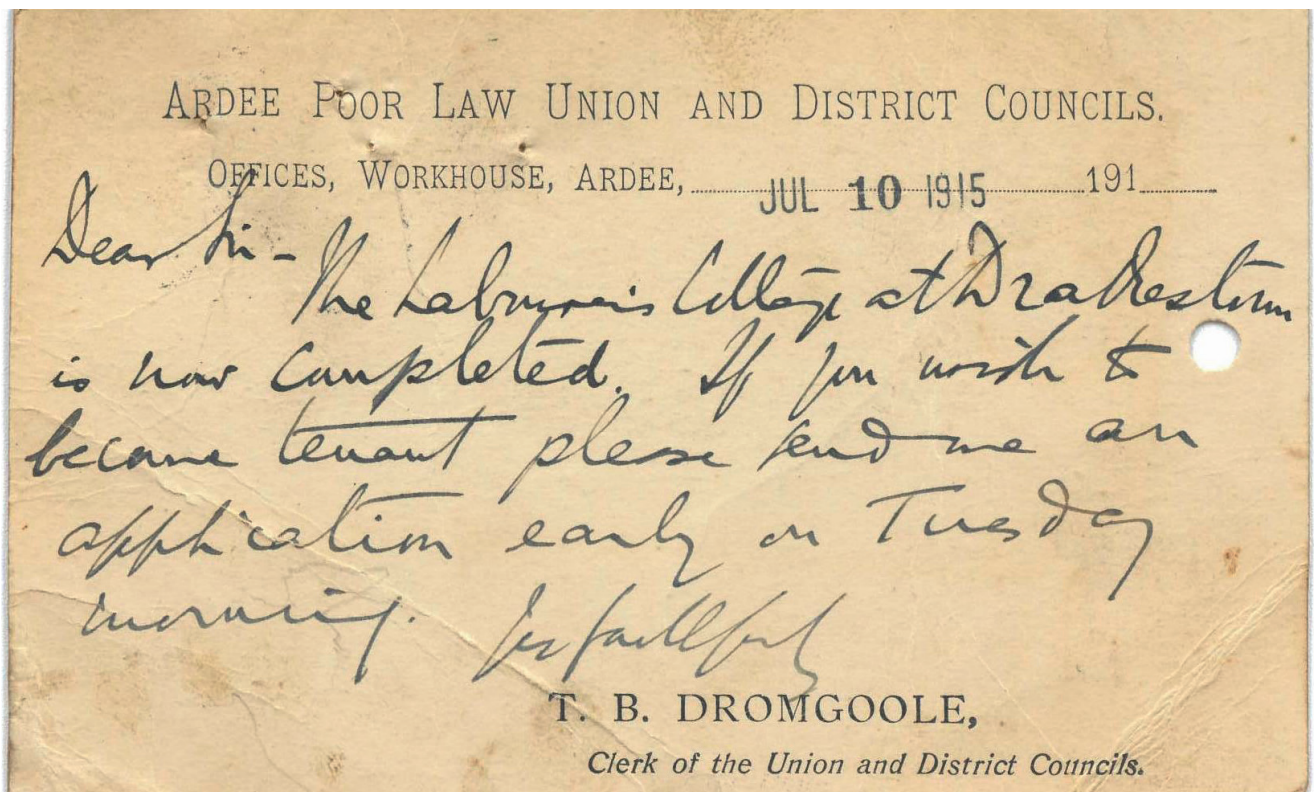 ARDEE POOR LAW UNION AND DISTRICT COUNCILS.
OFFICES, WORKHOUSE, ARDEE, JUL 10 1915 191
Dear Sir -
The Labourers Cottage at Drakestown
is now completed. If you wish to
become tenant please send me an
application early on Tuesday
morning. Yrs faithfully
T. B. DROMGOOLE,
Clerk of the Union and District Councils.